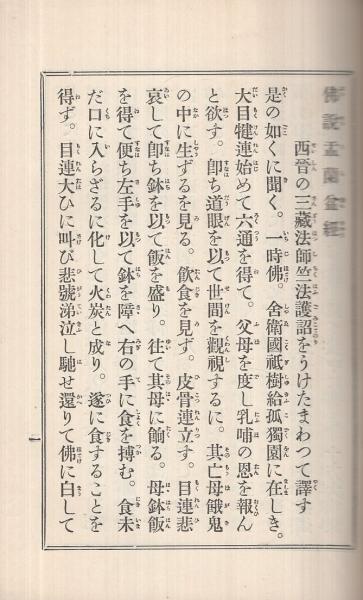 佛說盂蘭盆經
西晉の三藏法師竺法護詔をうけたまわつて譯す
是の如くに聞く。一時佛。舍衛國祇樹給孤獨園に在しき。
大目犍連始めて六通を得て。父母を度し乳哺の恩を報ん
と欲す。卽ち道眼を以て世間を觀視するに。其亡母餓鬼
の中に生ずるを見る。飮食を見ず。皮骨連立す。目連悲
哀して卽ち鉢を以て飯を盛り。往て其母に餉る。母鉢飯
を得て便ち左手を以て鉢を障へ右の手に食を摶む。食未
だ口に入らざるに化して火炭と成り。遂に食することを
得ず。目連大ひに叫び悲號涕泣し馳せ還りて佛に白して
一